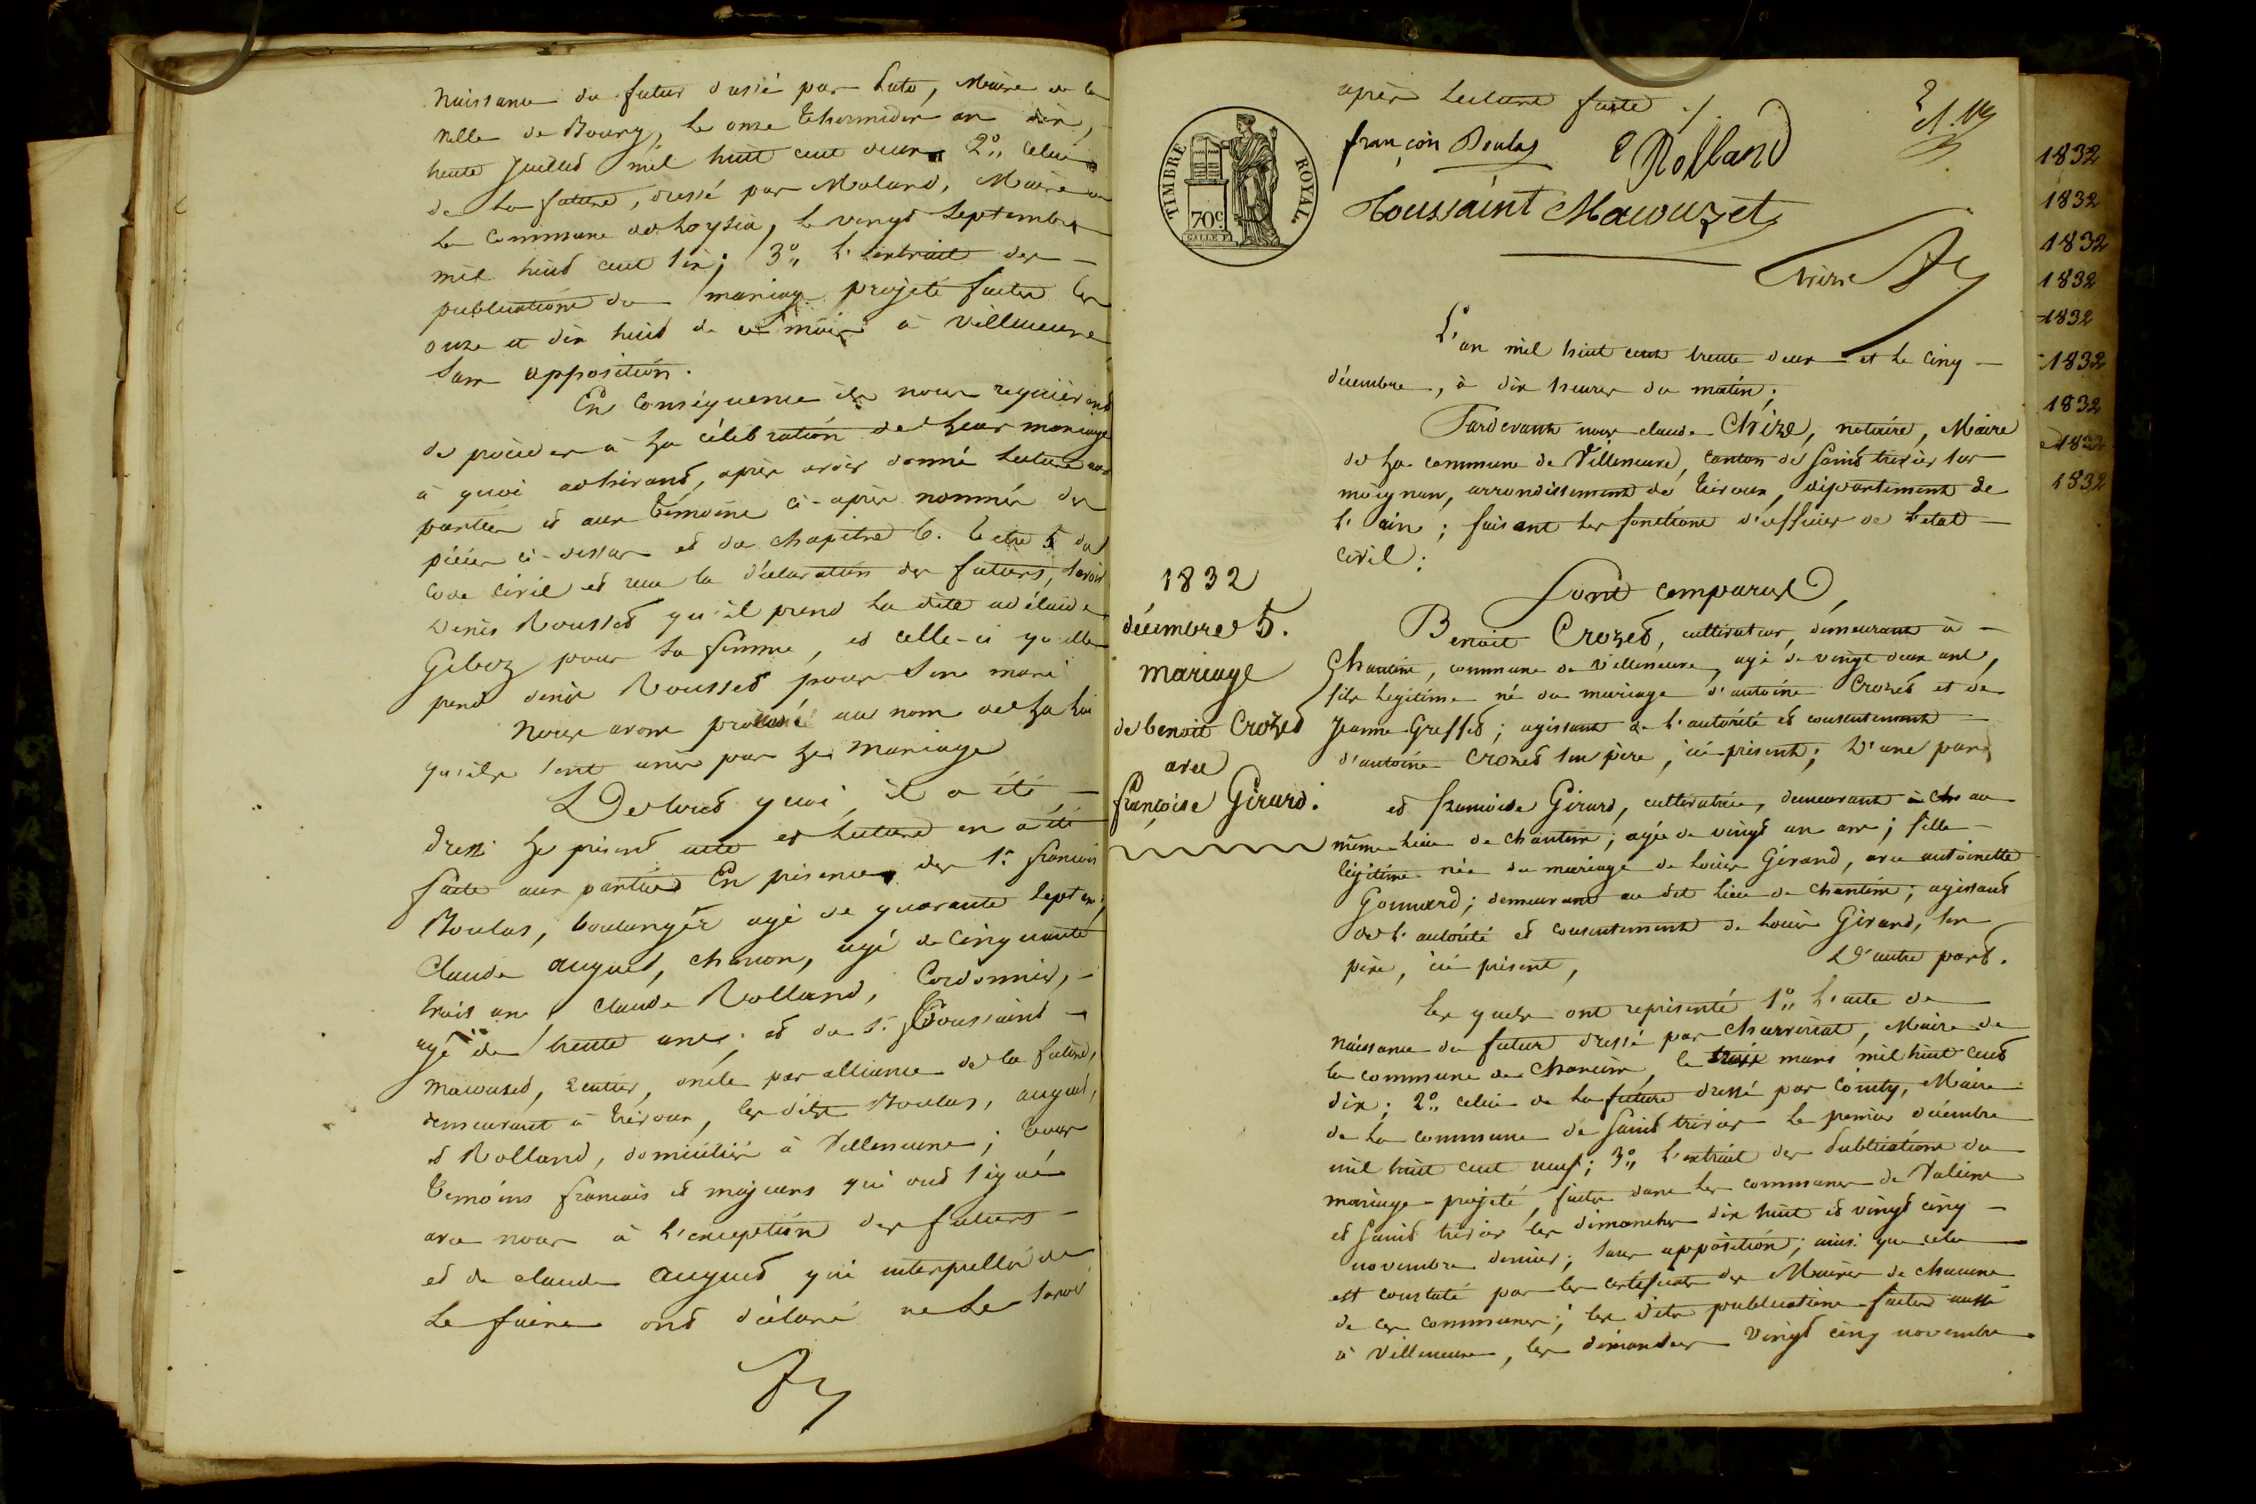 Naissance du futur dressé par Maire de la
ville de Bourg, le onze thermidor an dix,
trente Juillet mil huit cent deux 2° Celui
de la future, dressé par Maland, Maire de
la Commune de Loysia, le vingt Septembre
mil huit cent dix; 3° l'extrait des
publications du mariage projeté faites les
onze et dix huit de ce mois à Villeneuve
sans opposition.
En Conséquence ils nous requièrent
de procéder à la célébration de leur mariage
à quoi adhérant, après avoir donné lecture aux
parties et aux témoins ci-après nommés des
pièces ci-dessus et du chapitre 6. titre 5 du
code Civil et reçu la déclaration des futurs, savoir
Denis Rousset qu'il prend la dite adélaide
Geboz pour sa femme, et celle-ci qu'elle
prend denis Rousset pour son mari
Nous avons prononcé au nom de la loi
qu'ils sont unis par le mariage
De tout quoi, il a été
dressé le présent acte et lecture en a été
faite aux parties En présence des Sr. francois
Boulas, boulanger agé de quarante sept ans,
Claude auguet, charron, agé de Cinquante
trois ans, claude Rolland, Cordonnier,
agé de trente ans; et du Sr. Toussaint
Macouzet, rentier, oncle par alliance de la future,
demeurant à trévoux, les dits Boulas, auguet,
et Rolland, domiciliés à Villeneuve; tous
témoins francais et majeurs qui ont signé
avec nous à l'exception des futurs
et de claude auguet qui interpellés de
le faire ont déclaré ne le savoir
après lecture faite ./.
françois Boulas C Rolland
Toussaint Macouzet
Chize
TIMBRE ROYAL
70c.
L'an mil huit cent trente deux et le Cinq
décembre, à dix heures du matin;
Pardevant nous claude Chize, notaire, Maire
de la commune de Villeneuve, canton de Saint trivier sur
moignan, arrondissement de trévoux, département de
l'ain; faisant les fonctions d'officier de l'etat
civil;
Sont comparus,
1832
décembre 5.
mariage
de benoit Crozet
avec
françoise Girard.
Benoit Crozet, cultivateur, demeurant à
Chanteins, commune de Villeneuve, agé de vingt deux ans,
fils legitime né du mariage d'antoine Crozet et de
Jeanne Greffet; agissant de l'autorité et consentement
d'antoine Crozet son père, ici présent; D'une part
et francoise Girard, cultivatrice, demeurant à ch au
même lieu de chanteins; agée de vingt un ans; fille
légitime née du mariage de Louis Girard, avec antoinette
Gonnard; demeurant au dit lieu de chanteins; agissant
de l'autorité et consentement de Louis Girard, son
père, ici présent, D'autre part.
Les quels ont représenté 1° l'acte de
Naissance du futur dressé par Charveriat, Maire de
la commune de Chaneins, le trois mars mil huit cent
dix; 2° celui de la future dressé par Maire
de la commune de Saint trivier le premier décembre
mil huit cent neuf; 3° l'extrait des Publications du
mariage projeté, faites dans les communes de Valeins
et Saint trivier les dimanches dix huit et vingt cinq
novembre dernier; sans opposition; ainsi que cela
est constaté par les certificats des Maires de chacune
de ces communes; les dites publications faites aussi
à Villeneuve, les dimanches vingt cinq novembre
1832
1832
1832
1832
1832
1832
1832
1832
1832